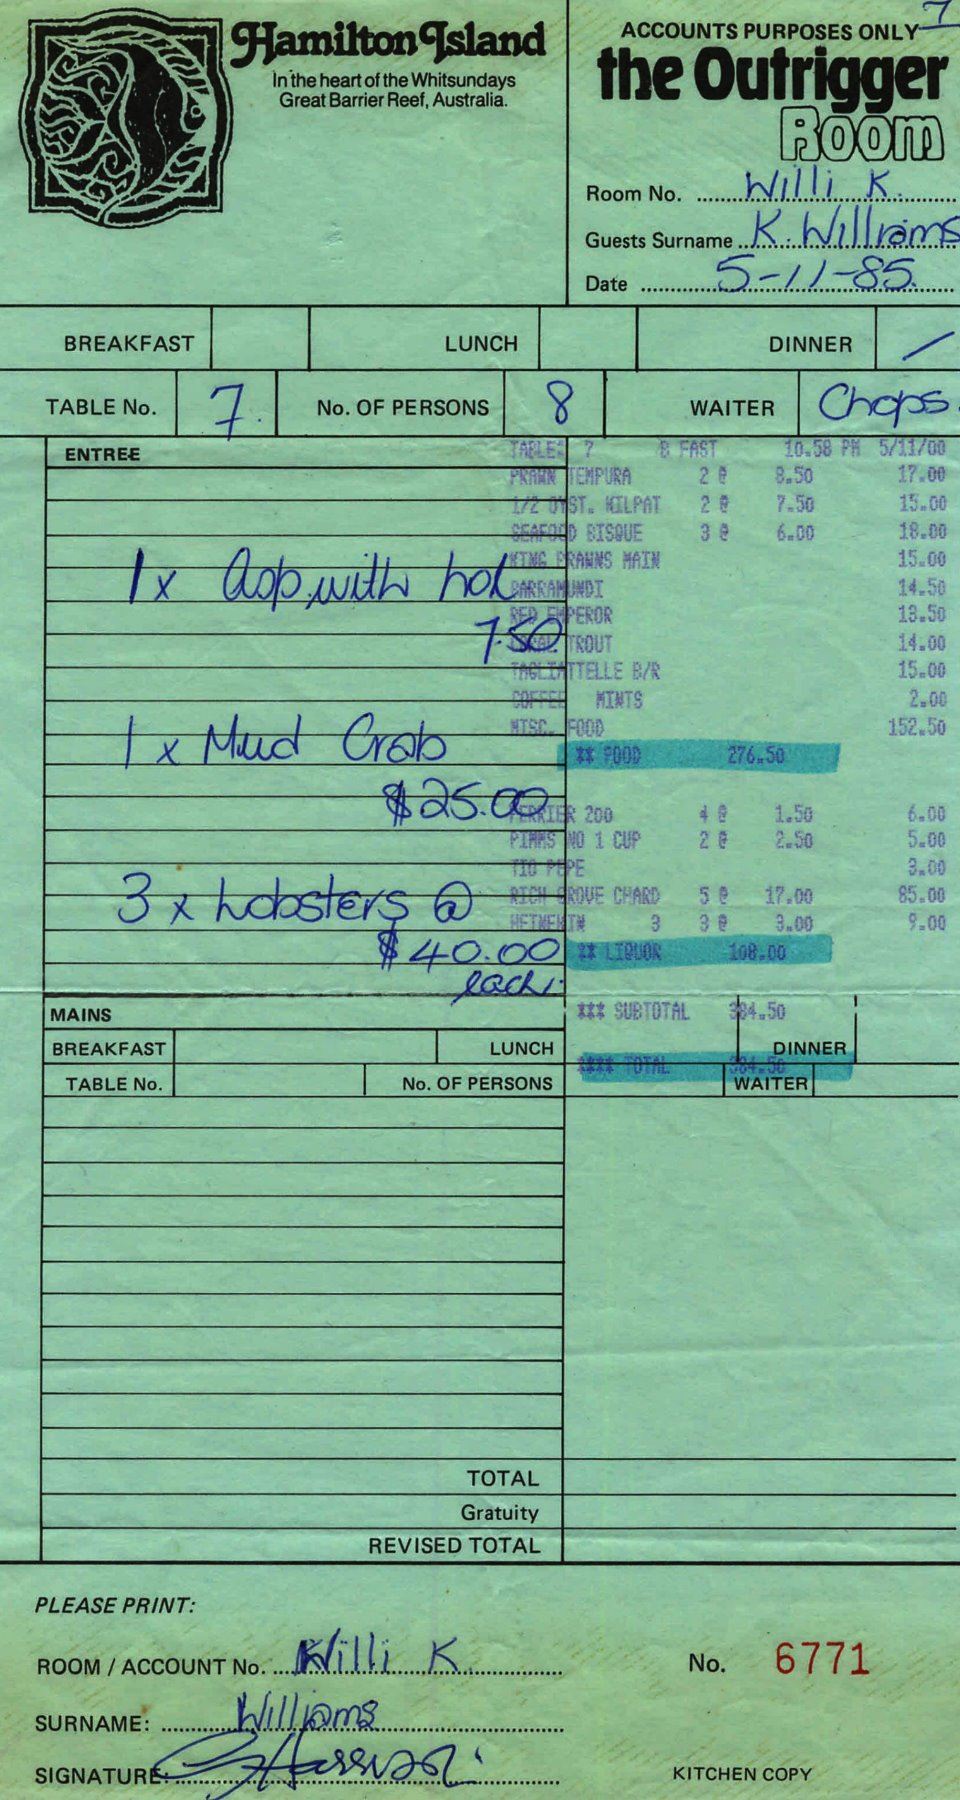 7
Hamilton Island
In the heart of the Whitsundays
Great Barrier Reef, Australia.
ACCOUNTS PURPOSES ONLY
the Outrigger
Room
Room No. Willi K.
Guests Surname K. Williams
Date 5-11-85.
BREAKFAST LUNCH DINNER /
TABLE No. 7. No. OF PERSONS 8 WAITER Chops.
ENTREE
TABLE: 7 B FAST 10.58 PM 5/11/00
PRAWN TEMPURA 2 @ 8.50 17.00
1/2 OYST. KILPAT 2 @ 7.50 15.00
SEAFOOD BISQUE 3 @ 6.00 18.00
KING PRAWNS MAIN 15.00
1 x Asp. with hol
BARRAMUNDI 14.50
RED EMPEROR 13.50
7.50
CORAL TROUT 14.00
TAGLIATTELLE B/R 15.00
COFFEE MINTS 2.00
MISC. FOOD 152.50
1 x Mud Crab
** FOOD 276.50
$25.00
PERRIER 200 4 @ 1.50 6.00
PIMMS NO 1 CUP 2 @ 2.50 5.00
TIO PEPE 3.00
3 x Lobsters @
RICH GROVE CHARD 5 @ 17.00 85.00
3 3 @ 3.00 9.00
$40.00
** LIQUOR 108.00
each.
*** SUBTOTAL 384.50
MAINS
BREAKFAST LUNCH DINNER
**** TOTAL 384.50
TABLE No. No. OF PERSONS WAITER
TOTAL
Gratuity
REVISED TOTAL
PLEASE PRINT:
ROOM / ACCOUNT No. Willi K.
No. 6771
SURNAME: Williams
SIGNATURE:
KITCHEN COPY